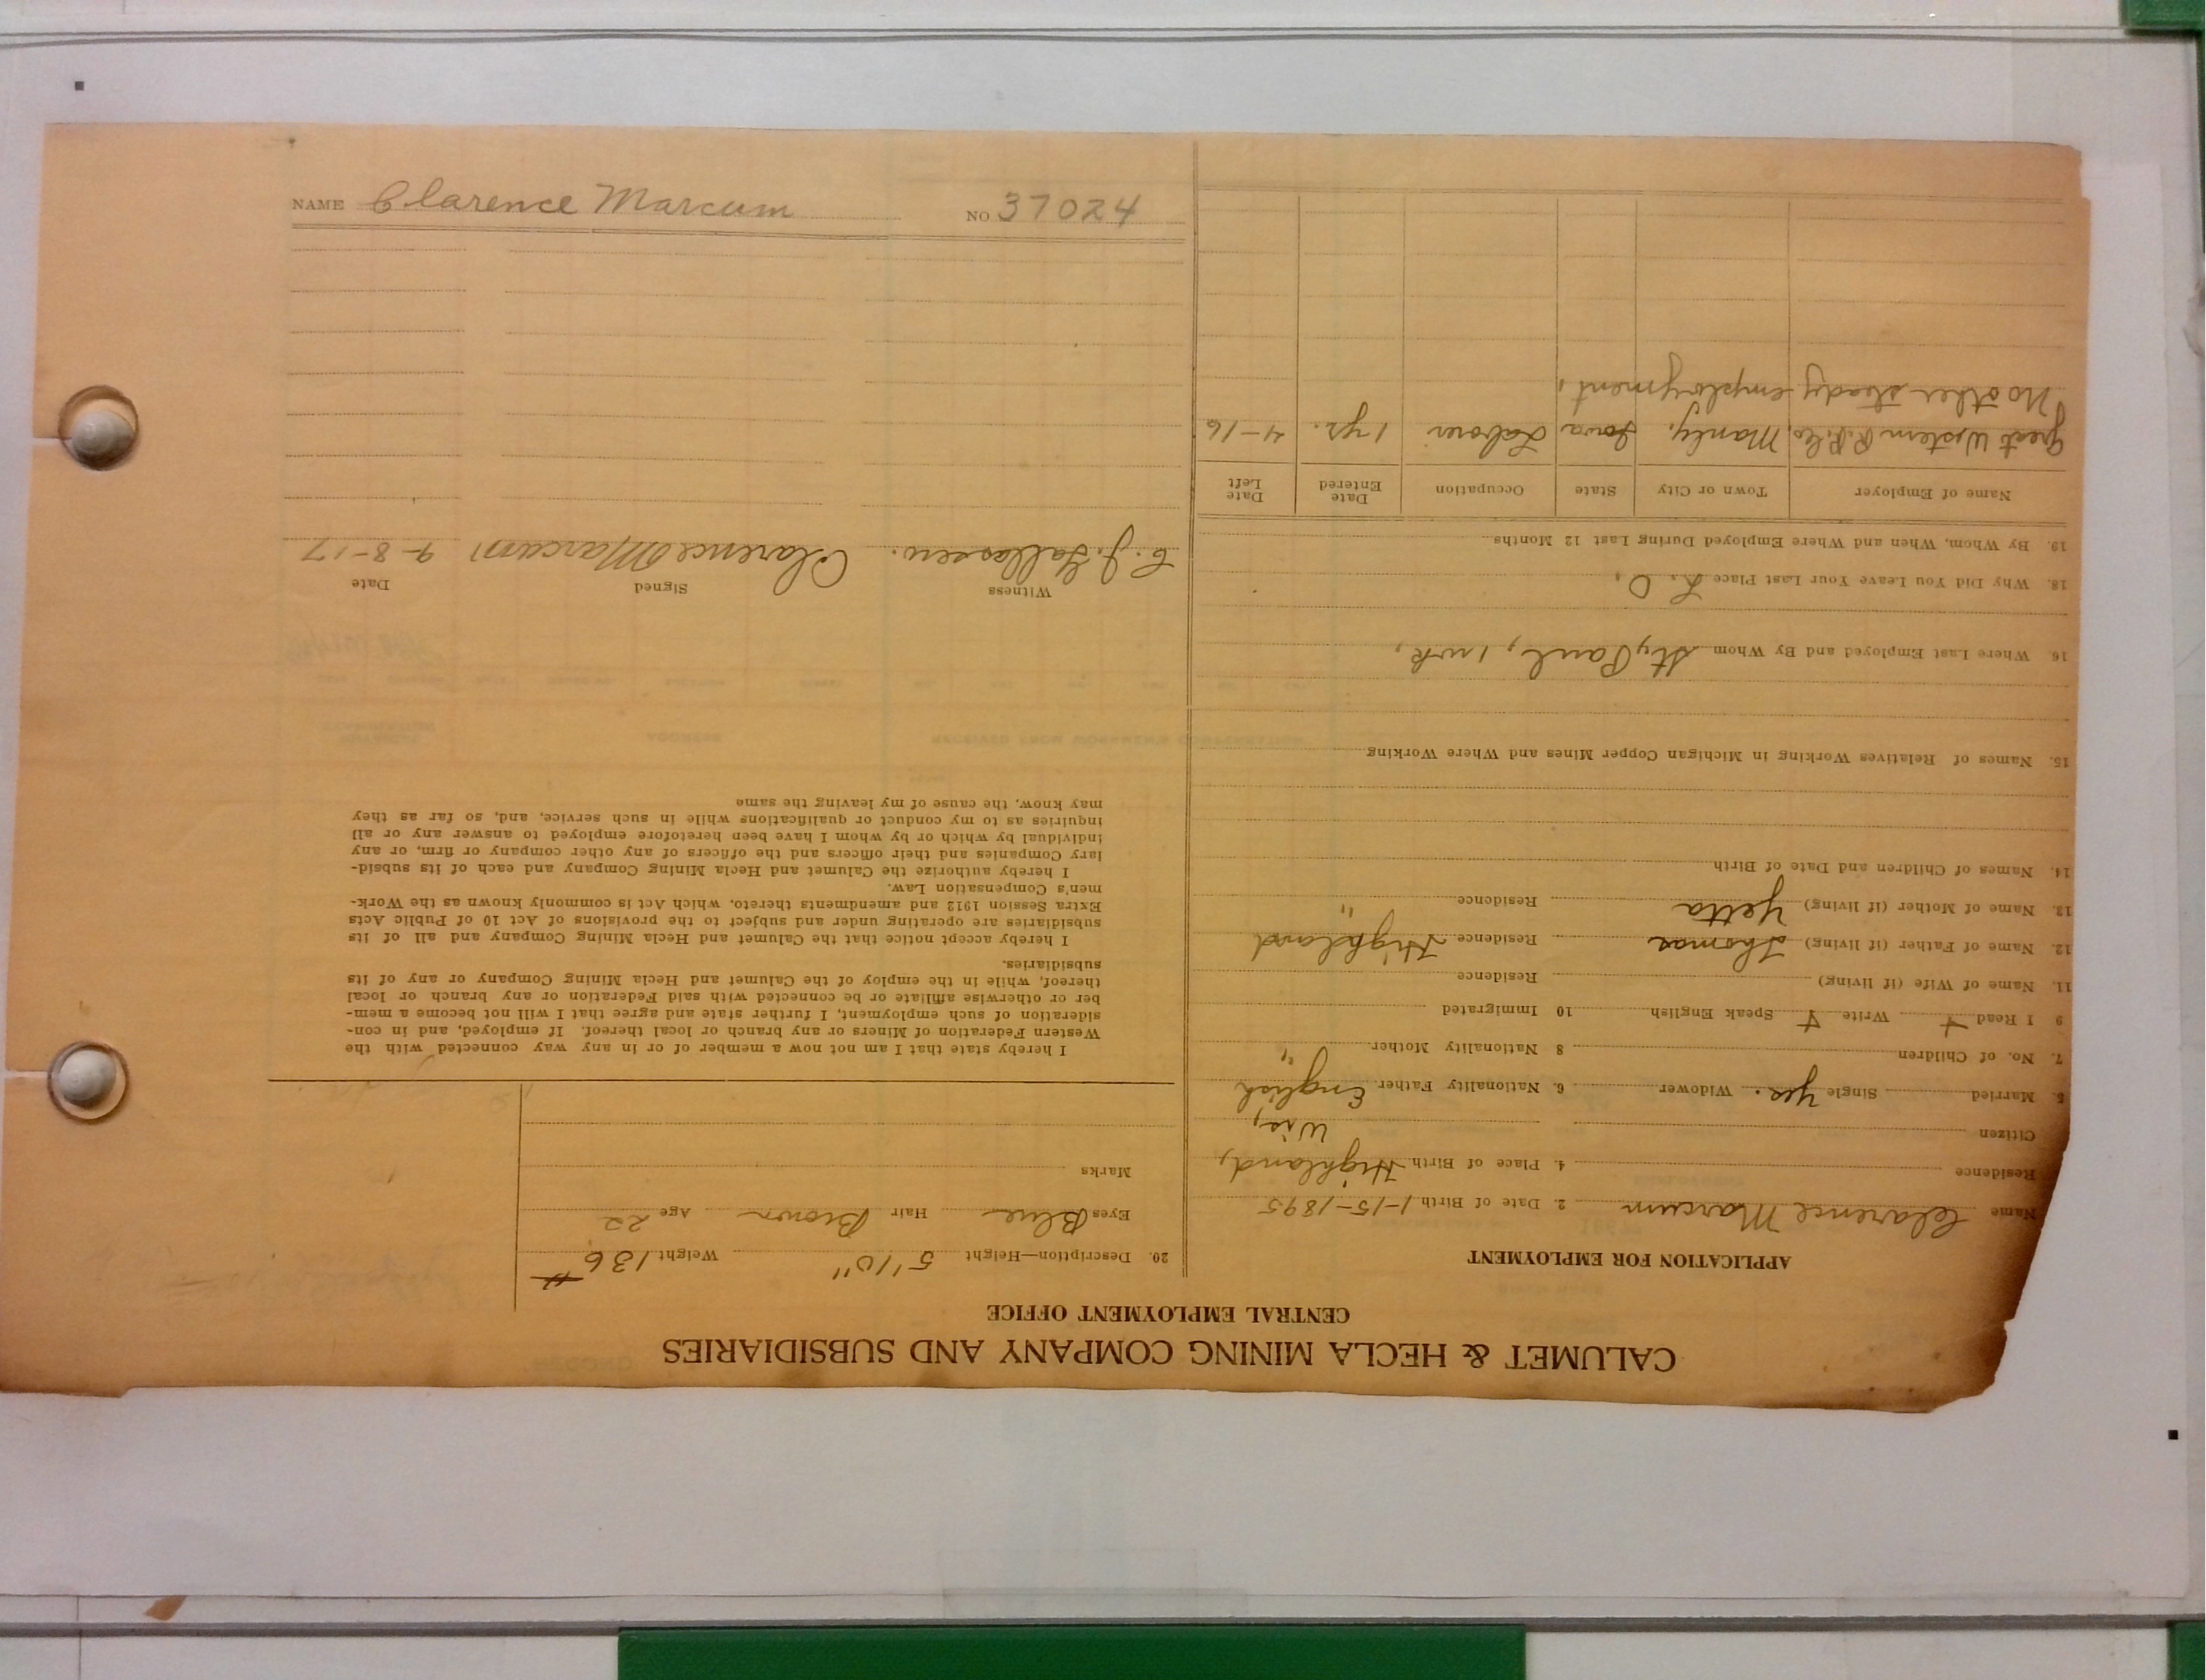 NAME Clarence Marcum NO 37024
CALUMET & HECLA MINING COMPANY AND SUBSIDIARIES
CENTRAL EMPLOYMENT OFFICE
APPLICATION FOR EMPLOYMENT
Name Clarence Marcum 2. Date of Birth 1-15-1895
Residence 4. Place of Birth Highland,
Citizen Wis,
5. Married Single Yes. Widower 6. Nationality Father English
7. No. of Children 8 Nationality Mother "
9 I Read + Write + Speak English 10 Immigrated
11. Name of Wife (if living) Residence
12. Name of Father (if living) Thomas Residence Highland
13. Name of Mother (if living) Yetta Residence "
14. Names of Children and Date of Birth
15. Names of Relatives Working in Michigan Copper Mines and Where Working
16. Where Last Employed and By Whom St, Paul, 1 wk,
18. Why Did You Leave Your Last Place L. O.
19. By Whom, When and Where Employed During Last 12 Months
Name of Employer Town or City State Occupation Date Entered Date Left
Great Western R.R. Co, Manly, Iowa Laborer 1 yr. 4-16
No other steady employment,
20. Description—Height 5'10" Weight 136 #
Eyes Blue Hair Brown Age 22
Marks
I hereby state that I am not now a member of or in any way connected with the
Western Federation of Miners or any branch or local thereof. If employed, and in con-
sideration of such employment, I further state and agree that I will not become a mem-
ber or otherwise affiliate or be connected with said Federation or any branch or local
thereof, while in the employ of the Calumet and Hecla Mining Company or any of its
subsidiaries.
I hereby accept notice that the Calumet and Hecla Mining Company and all of its
subsidiaries are operating under and subject to the provisions of Act 10 of Public Acts
Extra Session 1912 and amendments thereto, which Act is commonly known as the Work-
men's Compensation Law.
I hereby authorize the Calumet and Hecla Mining Company and each of its subsid-
iary Companies and their officers and the officers of any other company or firm, or any
individual by which or by whom I have been heretofore employed to answer any or all
inquiries as to my conduct or qualifications while in such service, and, so far as they
may know, the cause of my leaving the same
Witness Signed Date
C. J. Clarence Marcum 9-8-17